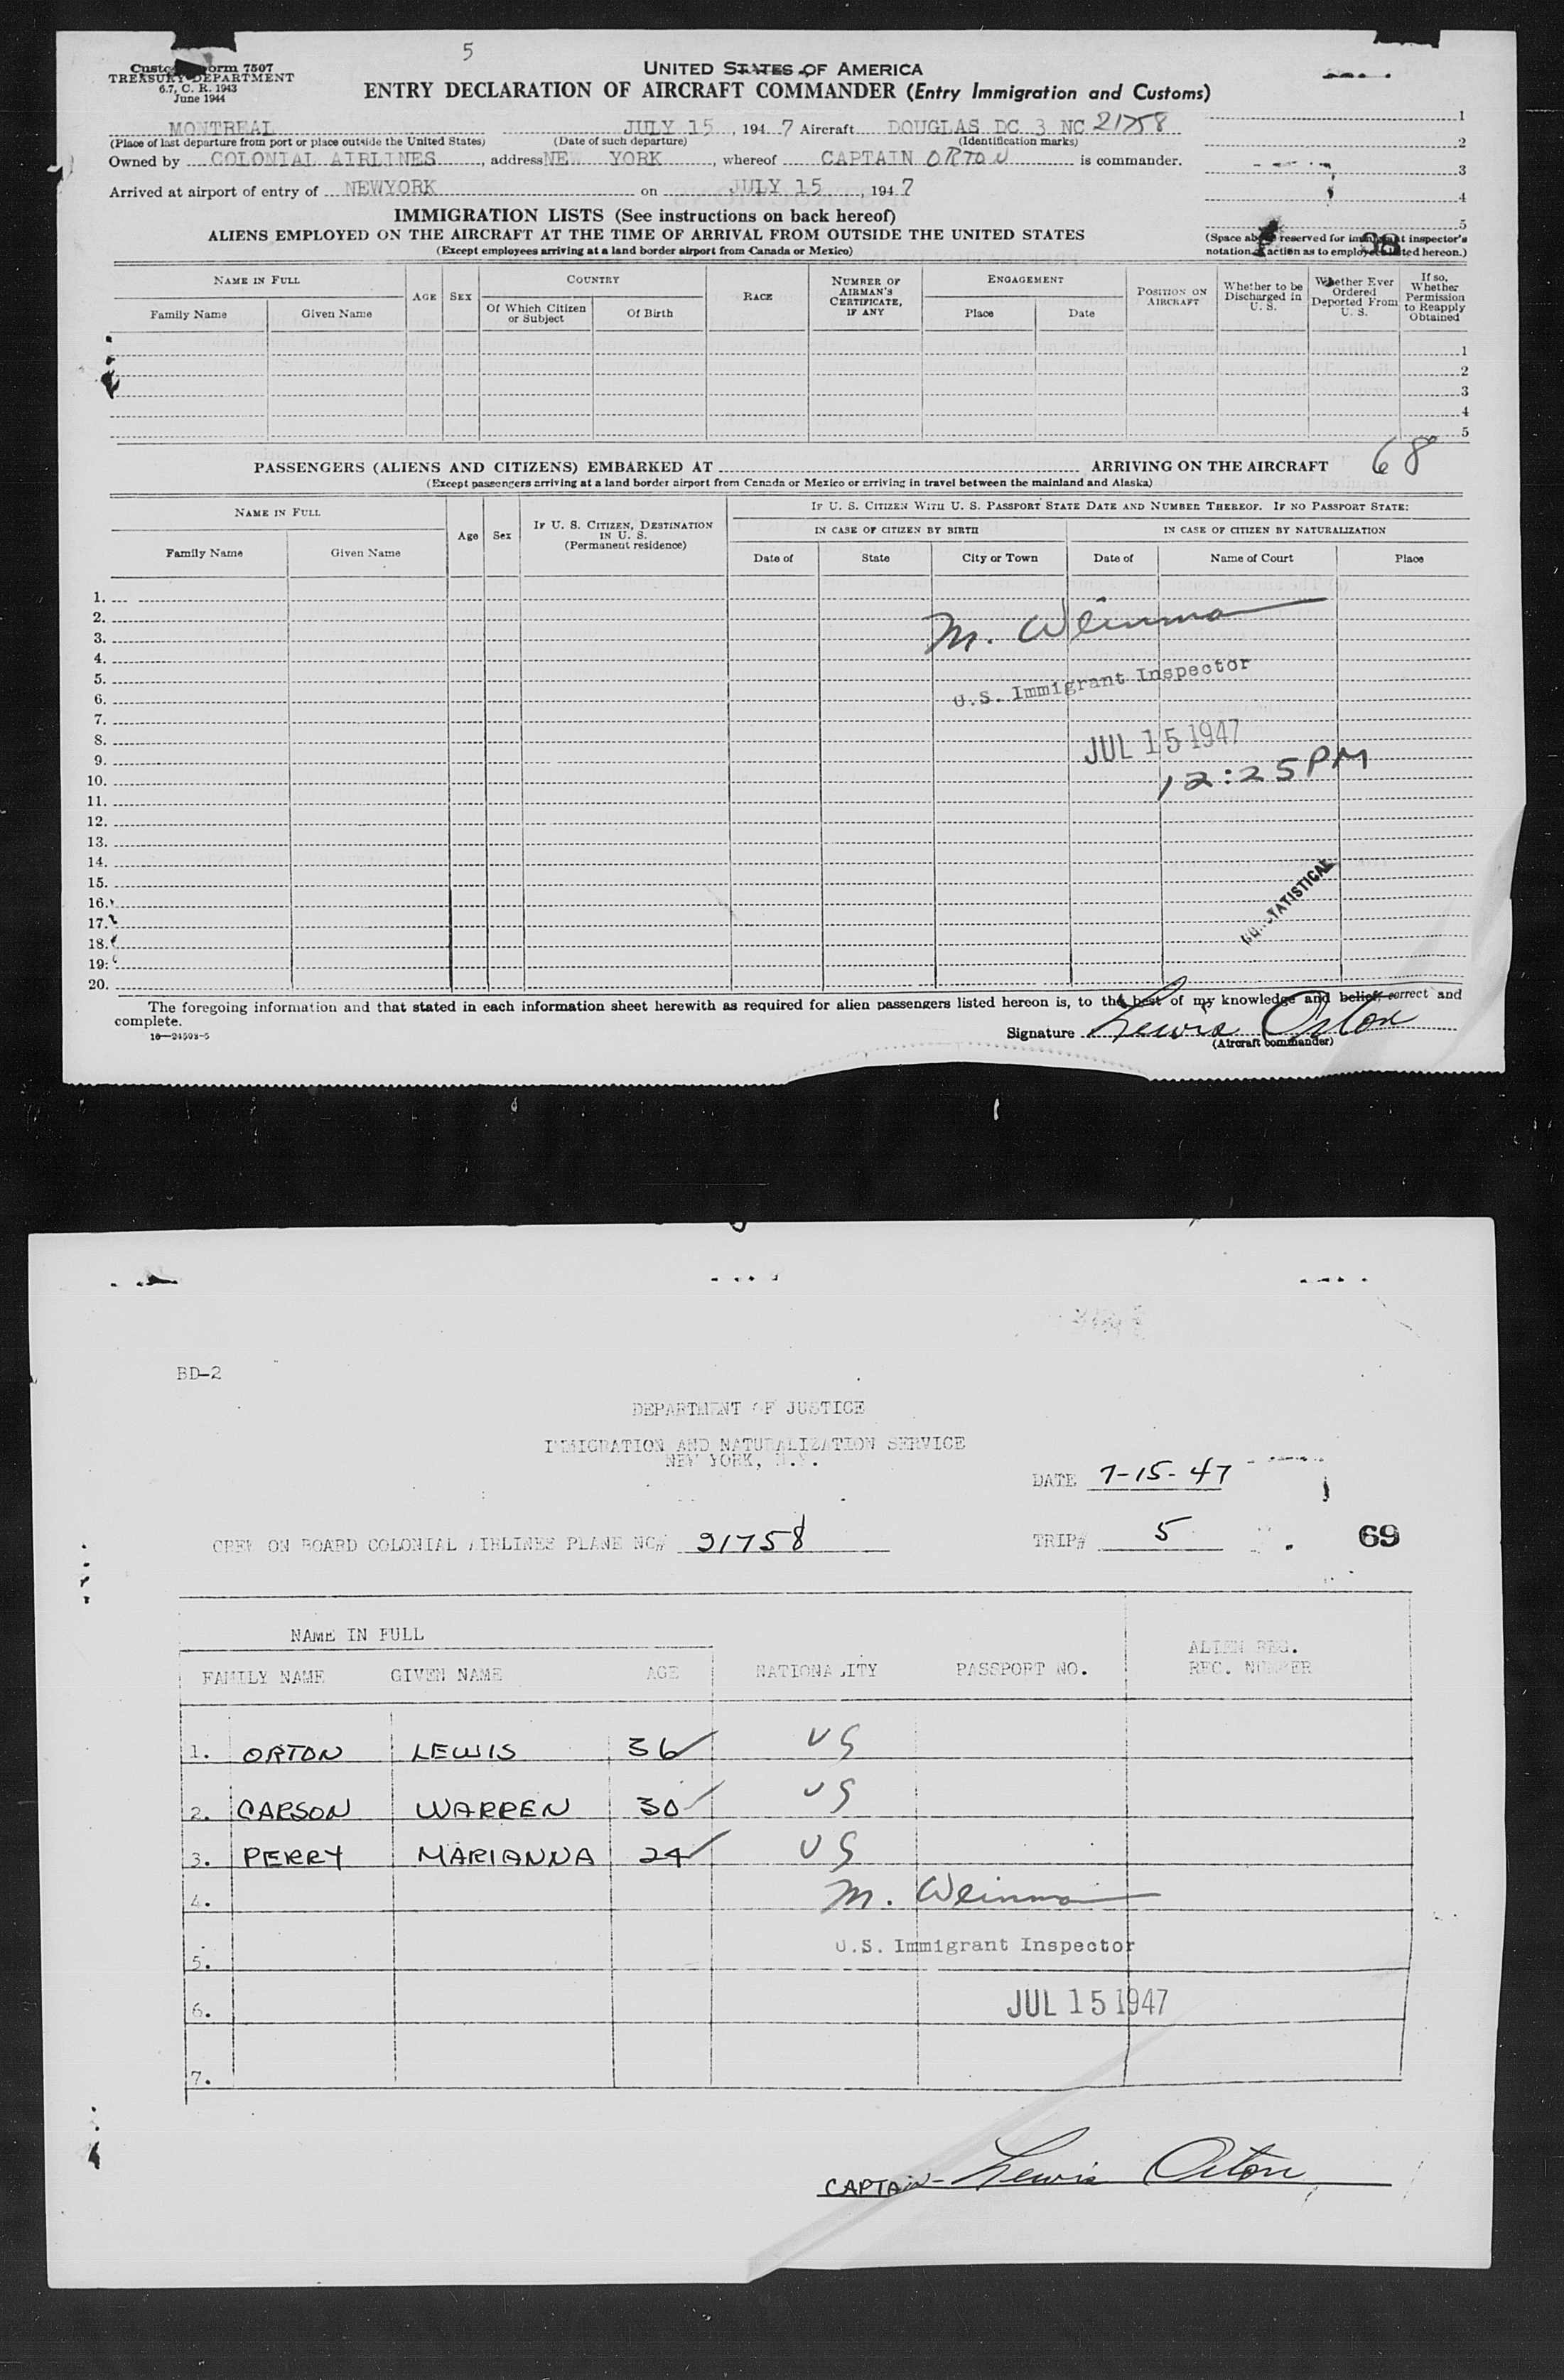 5
Form 7507
TREASURY DEPARTMENT
6.7, C. R. 1943
June 1944
UNITED STATES OF AMERICA
ENTRY DECLARATION OF AIRCRAFT COMMANDER (Entry Immigration and Customs)
MONTREAL JULY 15, 1947 Aircraft DOUGLAS DC 3 NC 21758
(Place of last departure from port or place outside the United States) (Date of such departure) (Identification marks)
Owned by COLONIAL AIRLINES, address NEW YORK, whereof CAPTAIN ORTON is commander.
Arrived at airport of entry of NEWYORK on JULY 15, 1947
1
2
3
4
5
IMMIGRATION LISTS (See instructions on back hereof)
ALIENS EMPLOYED ON THE AIRCRAFT AT THE TIME OF ARRIVAL FROM OUTSIDE THE UNITED STATES
(Except employees arriving at a land border airport from Canada or Mexico)
(Space above reserved for immigrant inspector's
notation action as to employees listed hereon.)
38
NAME IN FULL
Family Name Given Name
AGE SEX
COUNTRY
Of Which Citizen or Subject Of Birth
RACE
NUMBER OF AIRMAN'S CERTIFICATE, IF ANY
ENGAGEMENT
Place Date
POSITION ON AIRCRAFT
Whether to be Discharged in U. S.
Whether Ever Ordered Deported From U. S.
If so, Whether Permission to Reapply Obtained
1
2
3
4
5
PASSENGERS (ALIENS AND CITIZENS) EMBARKED AT ARRIVING ON THE AIRCRAFT 68
(Except passengers arriving at a land border airport from Canada or Mexico or arriving in travel between the mainland and Alaska)
NAME IN FULL
Family Name Given Name
Age Sex
IF U. S. CITIZEN, DESTINATION IN U. S. (Permanent residence)
IF U. S. CITIZEN WITH U. S. PASSPORT STATE DATE AND NUMBER THEREOF. IF NO PASSPORT STATE:
IN CASE OF CITIZEN BY BIRTH IN CASE OF CITIZEN BY NATURALIZATION
Date of State City or Town Date of Name of Court Place
1.
2.
3.
M. Weinman
4.
5.
6.
U.S. Immigrant Inspector
7.
8.
JUL 15 1947
9.
10.
12:25PM
11.
12.
13.
14.
15.
16.
17.
STATISTICAL
18.
19.
20.
The foregoing information and that stated in each information sheet herewith as required for alien passengers listed hereon is, to the best of my knowledge and belief, correct and
complete.
16—24508-5
Signature Lewis Orton
(Aircraft commander)
BD-2
DEPARTMENT OF JUSTICE
IMMIGRATION AND NATURALIZATION SERVICE
NEW YORK, N.Y.
DATE 7-15-47
CREW ON BOARD COLONIAL AIRLINES PLANE NC# 21758 TRIP# 5
69
NAME IN FULL
FAMILY NAME GIVEN NAME AGE NATIONALITY PASSPORT NO. ALIEN REG. REC. NUMBER
1. ORTON LEWIS 36 US
2. CARSON WARREN 30 US
3. PERRY MARIANNA 24 US
4. M. Weinman
5. U.S. Immigrant Inspector
6. JUL 15 1947
7.
CAPTAIN- Lewis Orton